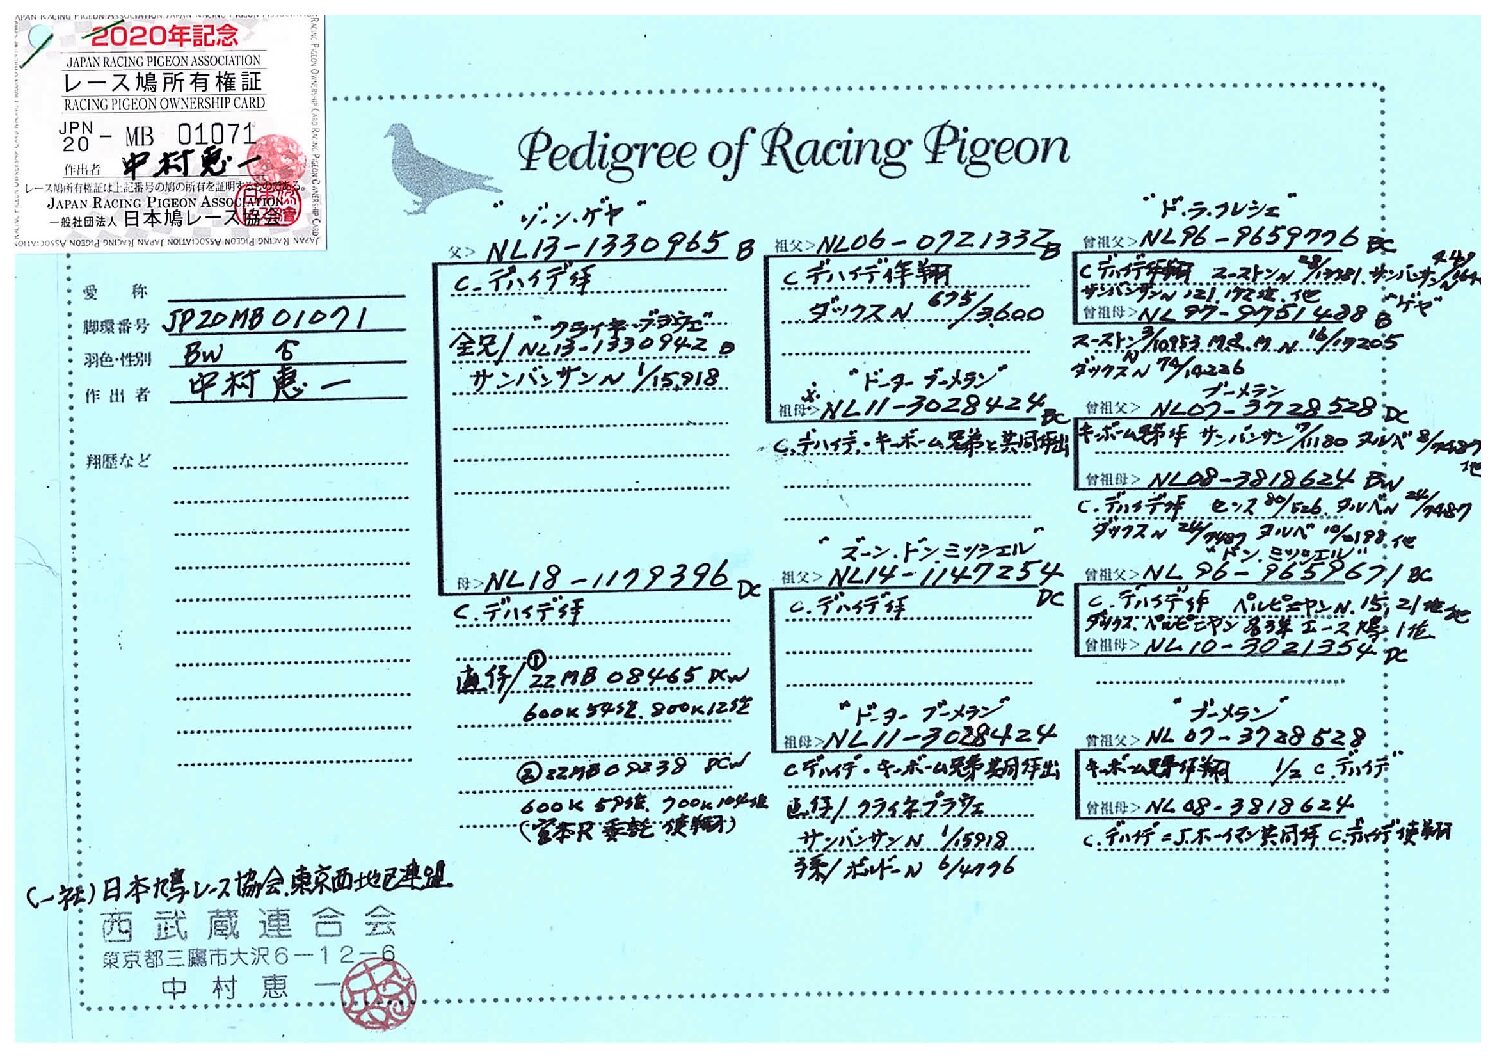 2020年記念
JAPAN RACING PIGEON ASSOCIATION
レース鳩所有権証
RACING PIGEON OWNERSHIP CARD
JPN 20 - MB 01071
作出者 中村恵一
レース鳩所有権証は上記番号の鳩の所有を証明するものである。
JAPAN RACING PIGEON ASSOCIATION
一般社団法人 日本鳩レース協会
Pedigree of Racing Pigeon
愛称
脚環番号 JP20MB01071
羽色・性別 BW ♀
作出者 中村恵一
翔歴など
"ゾーン.ゲヤ"
父> NL13-1330965 B
C.デハイデ作
"クライネ・ブラウェ"
全兄/NL13-1330942 B
サンバンサンN 1/15,918
母> NL18-1179396 DC
C.デハイデ作
①
直仔/22MB08465 DCW
600K54位.800K12位
②22MB09238 DCW
600K59位.700K104位
(宮本R委託使翔)
祖父> NL06-0721332 B
C デハイデ作翔
ダックスN 675/3,600
"ドーター ブーメラン"
祖母> NL11-3028424 BC
C.デハイデ・キーボーム兄弟と共同作出
"ズーン.ドン.ミッシェル"
祖父> NL14-1147254 DC
C.デハイデ作
"ドーター ブーメラン"
祖母> NL11-3028424
C デハイデ・キーボーム兄弟共同作出
直仔/クライネブラウェ
サンバンサンN 1/15918
孫/ボルドーN 6/4776
"ド.ラ.フレシェ"
曾祖父> NL96-9659776 BC
C デハイデ作翔 スーストンN
サンバンサンN 121.172位.他
"ゲヤ"
曾祖母> NL97-9751488 B
スーストン3/10953 M.R.M N 16/17205
ダックスN 74/14226
ブーメラン
曾祖父> NL07-3728528 DC
キーボーム兄弟作 サンバンサン7/11180 タルベ8/7487
他
曾祖母> NL08-3818624 BW
C.デハイデ作 センス80/526.タルベN 24/7487
ダックスN 24/7487 タルベ 他
"ドン.ミッシェル"
曾祖父> NL96-9659671 BC
C.デハイデ作 ペルピニャンN.15,21位他
ダックス.ペルピニャン エース鳩1位
曾祖母> NL10-3021354 DC
"ブーメラン"
曾祖父> NL07-3728528
キーボーム兄弟作翔 1/2 C.デハイデ
曾祖母> NL08-3818624
C.デハイデ=J.ホーイマン共同作 C.デハイデ使翔
(一社)日本鳩レース協会.東京西地区連盟
西武蔵連合会
東京都三鷹市大沢6-12-6
中村恵一